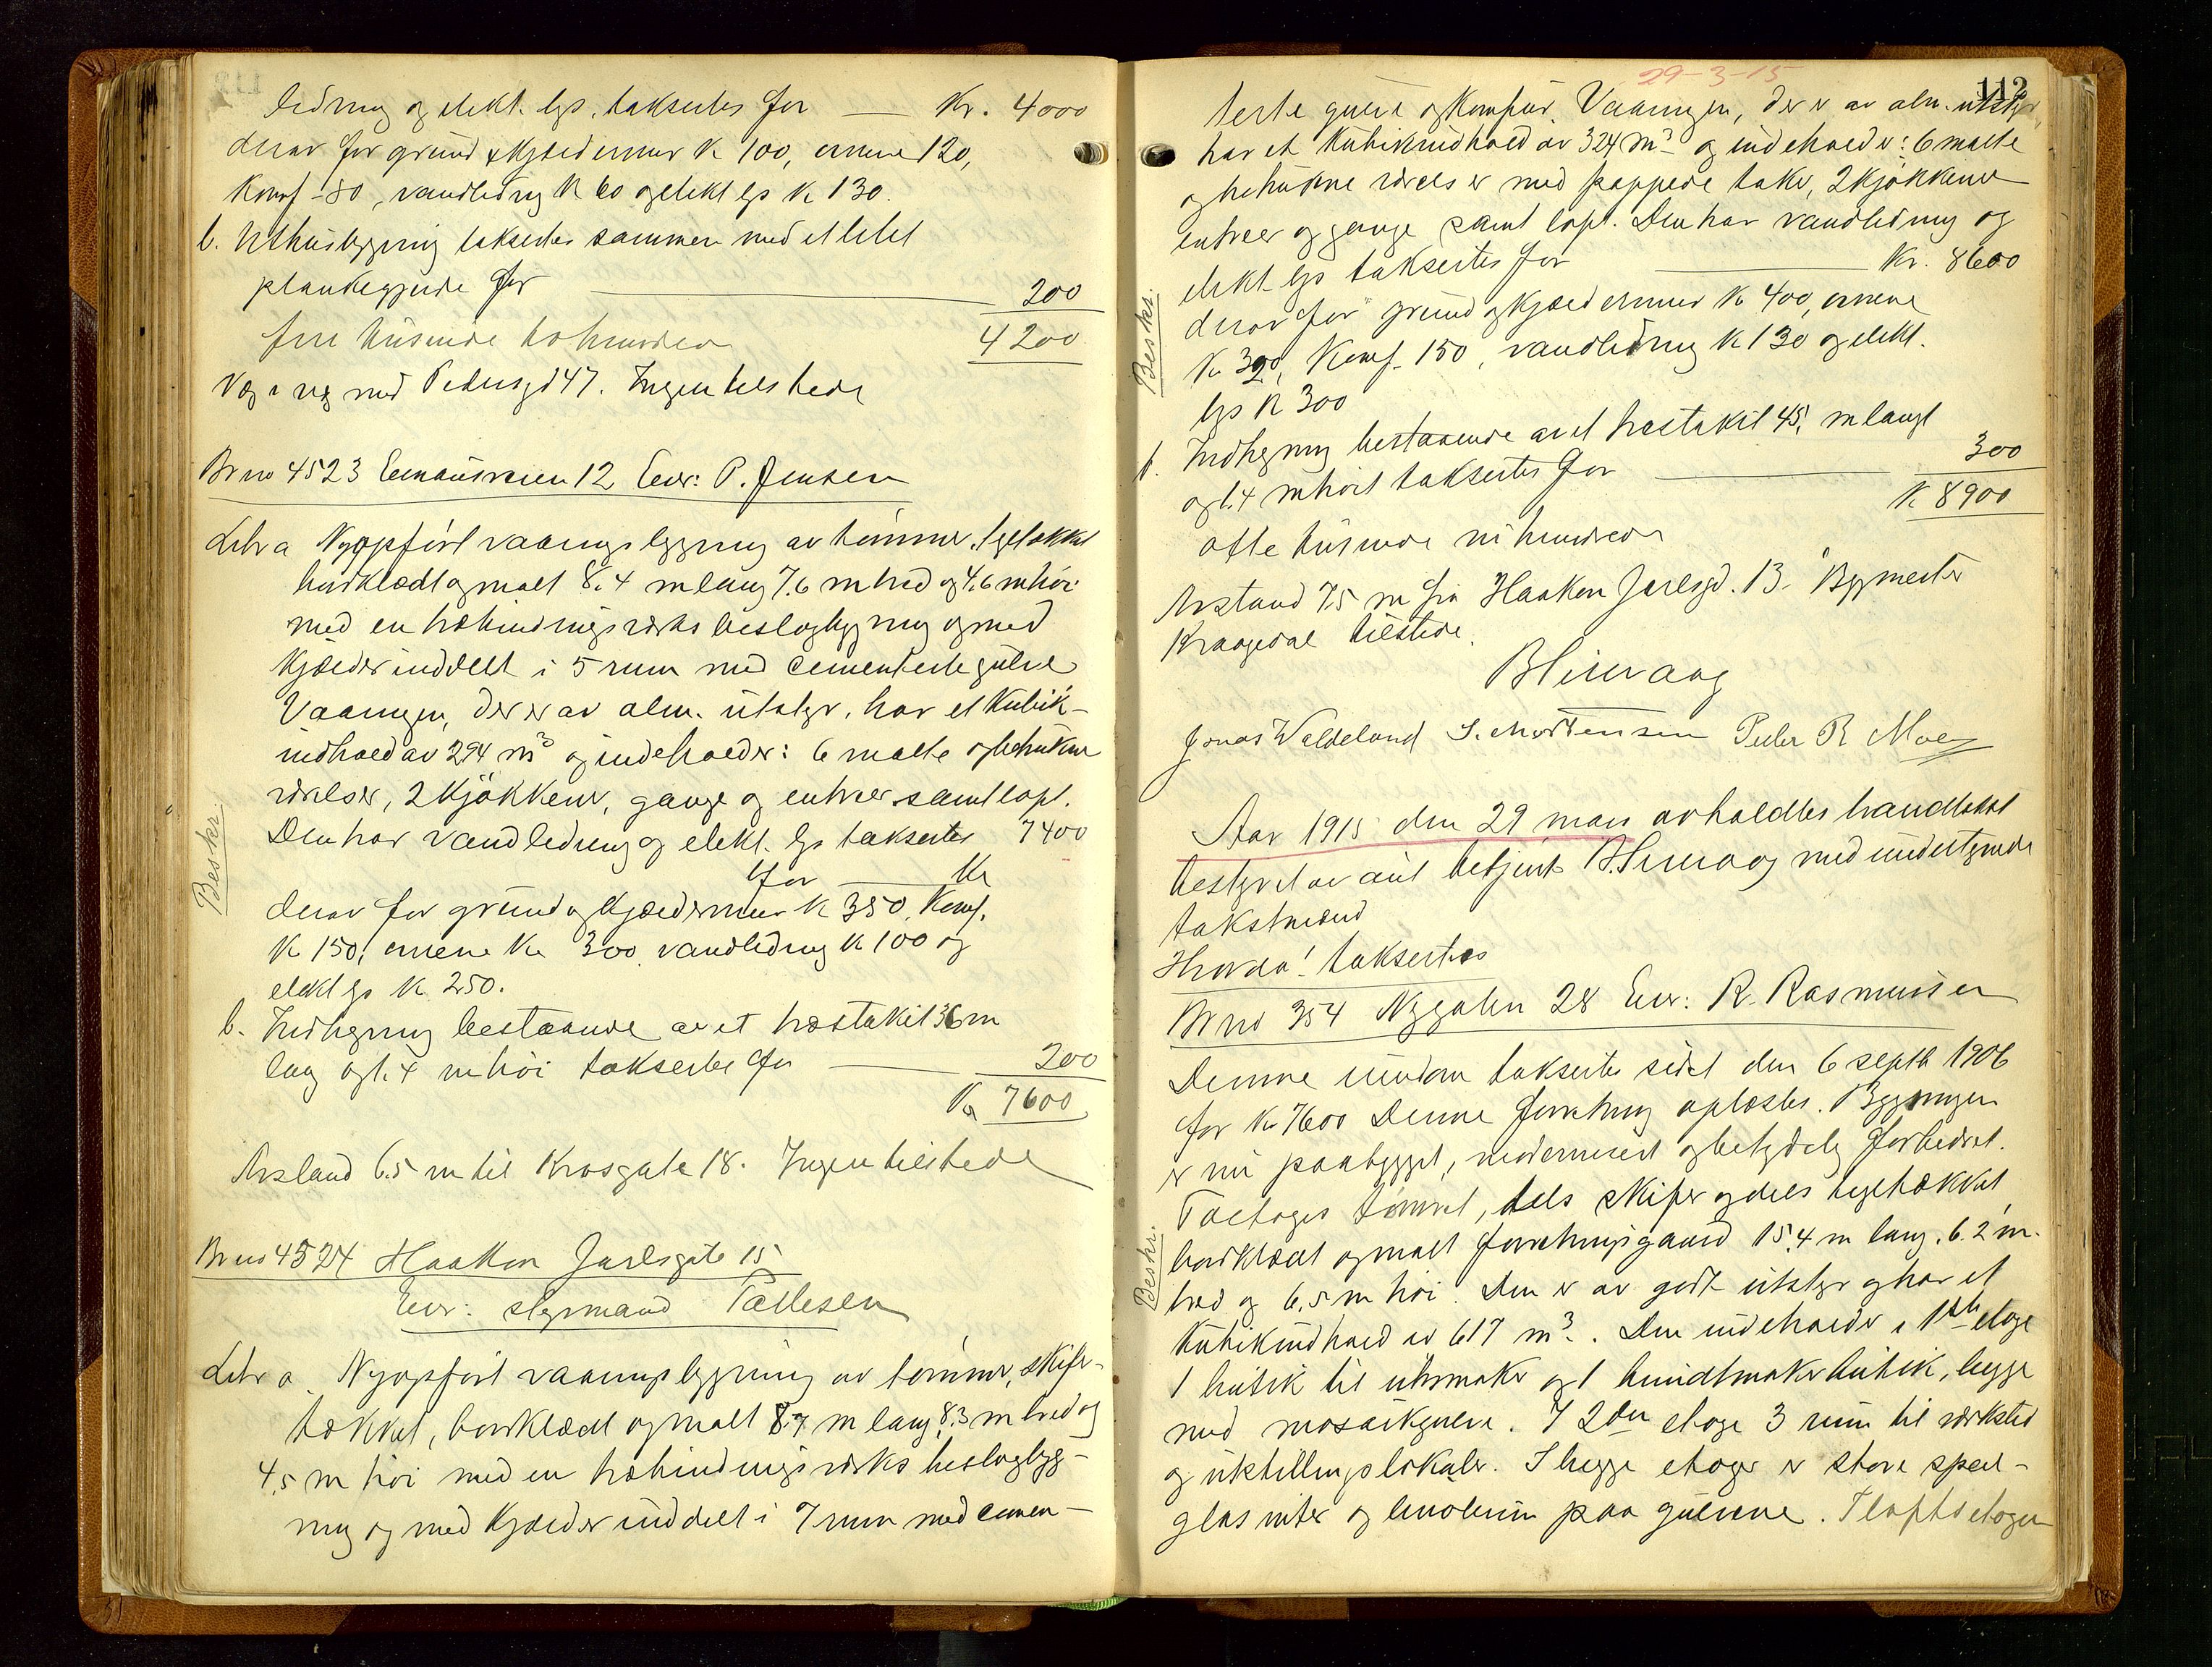 ledning og elekt. lys, takseres for — Kr. 4000
derav for grund & kjældermur K 100, ovnene 120,
Komf - 80, vandledng K 60 og elekt lys K 130.
b. Uthusbygning takseres sammen med et litet
plankegjerde for — 200
fire tusinde to hundrede 4200
Væg i væg med Pedersgd 47. Ingen tilstede
Br no 4523 Emausveien 12 Eier: P. Jensen
Litr a Nyopført vaaningsbygning av tømmer, tegltækket
bordklædt og malt 8.4 m lang 7.6 m bred og 4.6 m høi
med en træbindingsværks beslagbygning og med
Kjælder inddelt i 5 rum med cementerte gulve
Vaaningen, der er av alm. utstyr, har et Kubik-
indhold av 294 m³ og indeholder: 6 malte og betrukne
værelser, 2 kjøkkener, gange og entreer samt loft.
Den har vandledning og elekt. lys takseres 7400
for — Kr
Beskr.
derav for grund og kjældermur K 350, Komf.
K 150, ovnene Kr 300 vandledng K 100 og
elekt lys K 250.
b. Indhegning bestaaende av et træstakit 36 m
lang og 1.4 m høi takseres for — 200
Kr 7600
Avstand 6.5 m til Krosgate 18. Ingen tilstede
Br no 4524 Haakon Jarlsgate 15
Eier: styrmand Tallesen
Litr a. Nyopført vaaningsbygning av tømmer, skifer-
tækket, bordklædt og malt 8.7 m lang, 8.3 m bred og
4.5 m høi med en træbindingsværks beslagbygg-
ning og med Kjælder inddelt i 7 rum med cemen-
29-3-15
112
terte gulve og Komfur. Vaaningen, der er av alm. utstyr,
har et Kubikindhold av 324 m³ og indeholder: 6 malte
og betrukne værelser med pappede taker, 2 kjøkkener
entreer og gange samt loft. Den har vandledning og
elekt lys takseres for — Kr. 8600
Beskr.
derav for grund og kjældermur K 400, ovnene
Kr 320, Komf. 150, vandledning K 130 og elekt.
lys K 300
b. Indhegning bestaaende av et træstakit 45, m langt
og 1.4 m høit takseres for — 300
K 8900
otte tusinde ni hundrede
Avstand 7.5 m fra Haakon Jarlsgd. 13. Bygmester
Kraagedal tilstede.
Jonas Waldeland S. Mortensen Peder R Moe
Aar 1915 den 29 mars avholdtes brandtakst
bestyret av aut betjent med undertegnede
takstmænd
Hvorda! takseres
Br no 354 Nygaten 28 Eier: R. Rasmussen
Denne eiendom takseres sidst den 6 septb 1906
for Kr 7600 Denne forretning oplæstes. Bygningen
er nu paabygget, moderniseret og betydelig forbedret.
Beskr.
Toetages tømret, dels skifer og dels tegltækket
bordklædt og malt forretningsgaard 15.4 m lang, 6.2 m.
bred og 6.5 m høi. Den er av godt utstyr og har et
Kubikindhold av 617 m³. Den indeholder i 1ste etage
1 butik til uhrmaker og 1 bundtmakerbutik, begge
med mosaikgulve. I 2den etage 3 rum til verksted
og utstillingslokaler. I begge etager er store speil-
glas ruter og linoleum paa gulvene. I loftsetagen